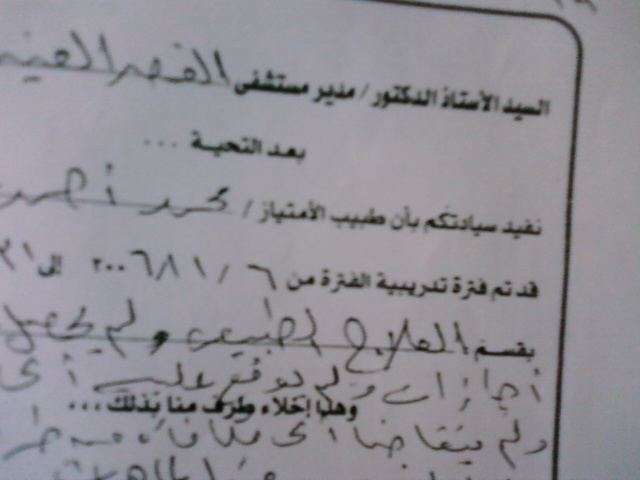 السيد الأستاذ الدكتور / مدير مستشفى القصر العينى
بعد التحية ...
نفيد سيادتكم بأن طبيب الأمتياز / محمد أحمد
قد تم فترة تدريبية الفترة من ٢٠٠٦/٨/١ إلى ٣١
بقسم العلاج الطبيعى ولم يحصل
أجازات ولم توقع عليه أى
وهذا إخلاء طرف منا بذلك ...
ولم يتقاضا أى مكافأه من